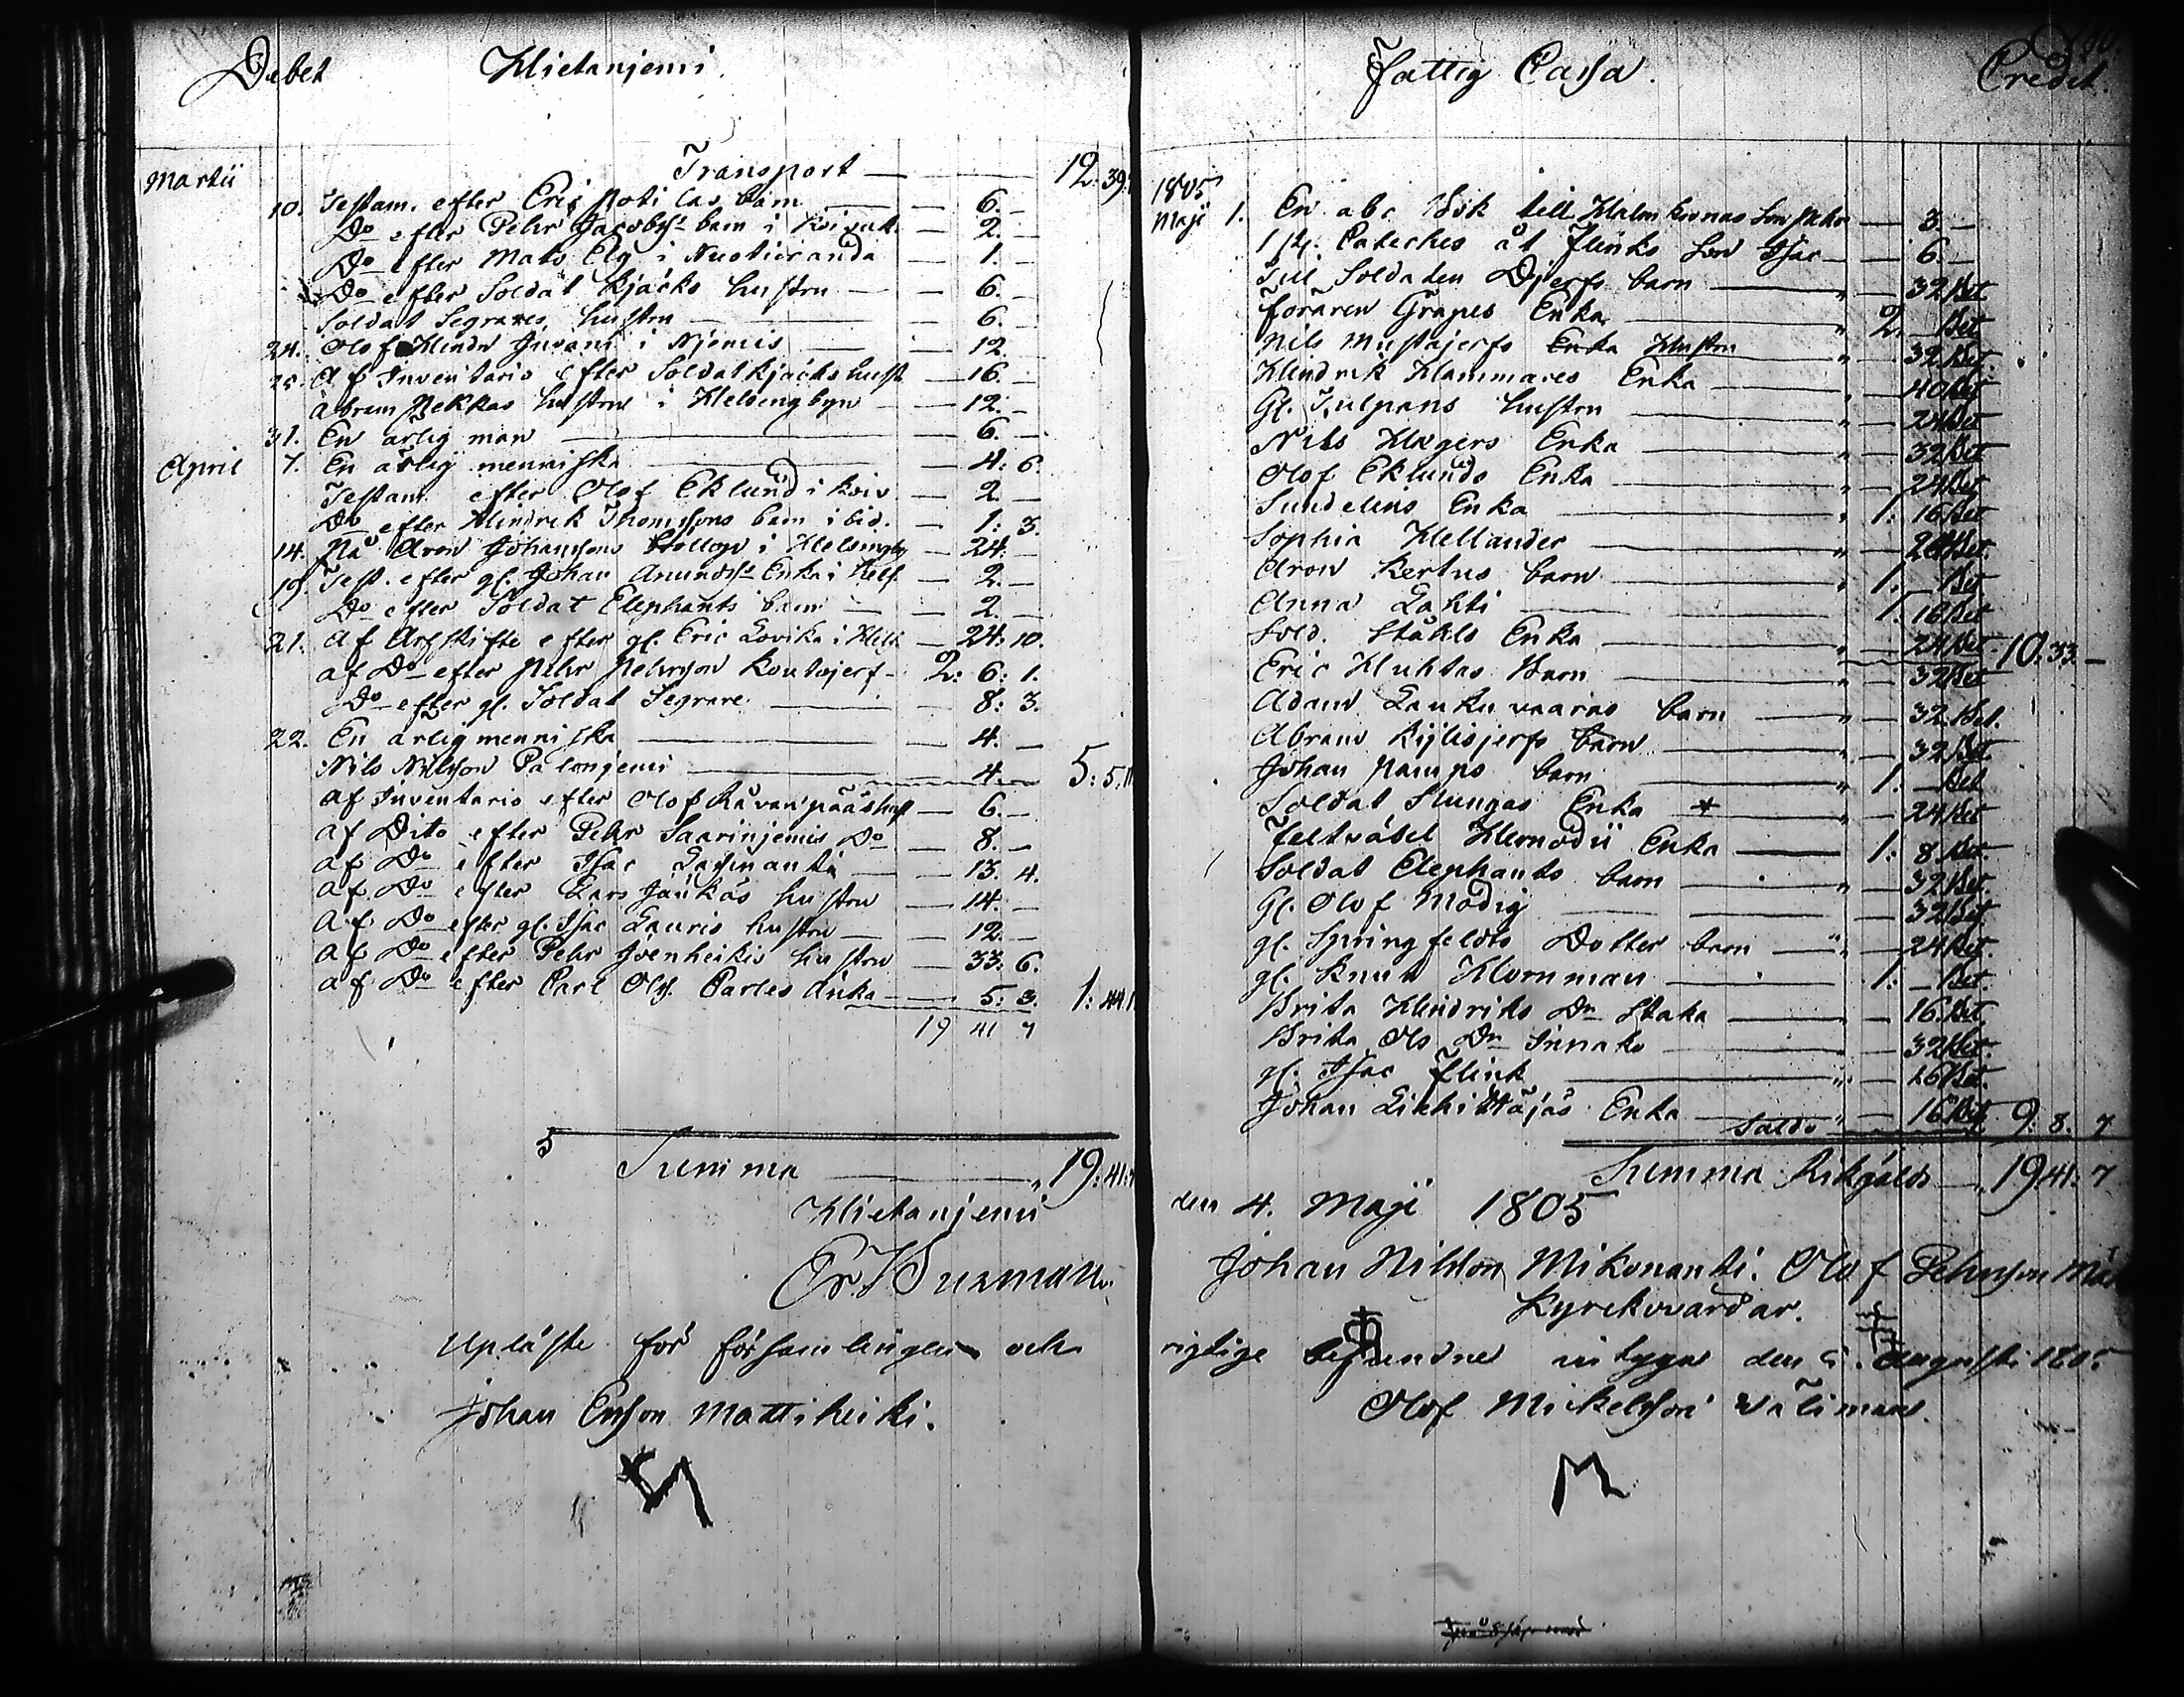 Debet Hietaniemi
Martii Transport — 12: 39:
10. Testam. efter Eric barn — 6. —
Do efter Pehr Jacobss barn i — 2. —
Do efter Mats Elg i Nuotioranda — 1. —
Do efter Soldat Kjäcks hustru — 6. —
Soldat Segrares hustru — 6. —
24. Olof Hindr Juvani i Njemis — 12. —
25. Af Inventario efter Soldat Kjäcks hust — 16. —
Abram Pekkas hustru i Helsingbyn — 12. —
31. En ärlig man — 6. —
April 7. En ärlig menniska — 4: 6.
Testam. efter Olof Eklund i Koiv — 2. —
Do efter Hindrik Thomssons barn ibid. — 1: 3.
14. På Aron Johanssons Bröllop i Helsingby — 24. —
19. Test. efter gl. Johan Anundss Enka i Hels. — 2. —
Do efter Soldat Elephants barn — 2. —
21. Af Arfskifte efter gl. Eric Lovika i Hels. — 24: 10.
af Do efter Pehr Pehrson Koutojerf — 2: 6: 1.
Do efter gl. Soldat Segrare — 8: 3.
22. En ärlig menniska — 4. —
Nils Nilsson Palonjemi — 4. — 5: 5:
af Inventario efter Olof — 6. —
af Dito efter Pehr Saarinjemis Do — 8. —
af Do efter Isac — 13. 4.
af Do efter Lars Jaukas hustru — 14. —
af Do efter gl. Isac Lauris hustru — 12. —
af Do efter Pehr Juenheikis hustru — 33: 6.
af Do efter Carl Ols. Carles änka — 5: 3. 1: 44:
19 41 7
Summa — 19: 41: 7
Hietaniemi
Er. Burman
Upläste för församlingen och
Johan Ersson Mattiheiki.
Fattig Cassa. Credit.
1805
Maji 1. En abc Bok till — 3. —
1 st. Cateches åt Flinks Son Isac — 6. —
Till Soldaten Djerfs barn — " — 32 Bet
Föraren Grapes Enka — " 2. — Bet
Nils Mustajerfs Hustru — " — 32 Bet.
Hindrik Hammares Enka — " — 40 Bet
Gl. Tulpans hustru — " — 24 Bet
Nils Hagers Enka — " — 32 Bet
Olof Eklunds Enka — " — 24 Bet
Sundelins Enka — " 1: 16 Bet
Sophia Hellander — " — 24 Bet.
Aron Kertus barn — " 1: — Bet
Anna Lahti — 1: 16 Bet
Sold. Ståhls Enka — " — 24 Bet. 10: 33. —
Eric Huhtas Barn — " — 32 Bet
Adam Laukuvaaras barn — " — 32 Bet.
Abram Kylisjerfs barn — " — 32 Bet.
Johan Pamps barn — " 1: — Bet
Soldat Slungas Enka * — " — 24 Bet
Feltväbel Hermodii Enka — 1: 8 Bet.
Soldat Elephants barn — " — 32 Bet.
Gl. Olof Modig — — 32 Bet.
gl. Springfeldts Dotter barn — " — 24 Bet.
gl. Knut Hornman — 1: — Bet.
Brita Hindriks Dr Staka — " — 16 Bet
Brita Ols Dr Innako — " — 32 Bet.
gl. Isac Flink — " — 16 Bet.
Johan Enka — " — 16 Bet.
Saldo — 9: 8. 7
Summa Riksgälds — 19: 41: 7
den 4. Maji 1805
Johan Nilsson Mikonanti. Olof Pehrson
Kyrckovärdar.
rigtige befundne intygar den 5. Augusti 1805
Olof Mickelsson Välimaa.